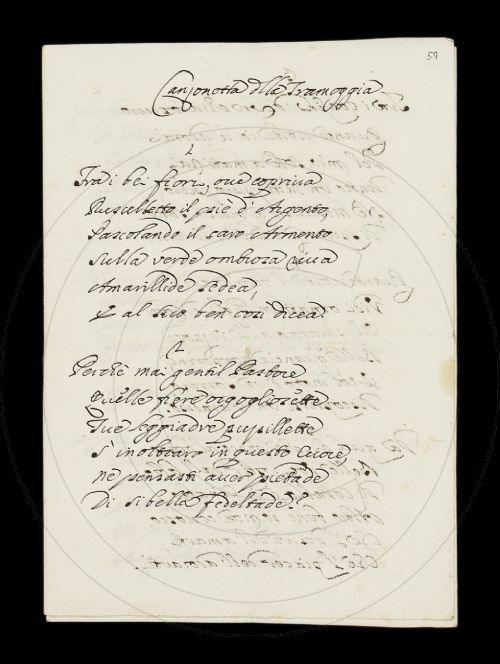 59
Canzonetta della Tramoggia
1
Tra di bei fiori, oue copriua
Ruscelletto il piè d'Argento,
Pascolando il caro Armento
Sulla verde ombrosa riua
Amarillide sedea,
E al suo ben cosi dicea.
2
Perche mai gentil Pastore
Quelle fiere orgogliosette
Tue leggiadre pupillette
S'inoltraro in questo Cuore
ne pensasti auer pietade
Di si bella fedeltade?